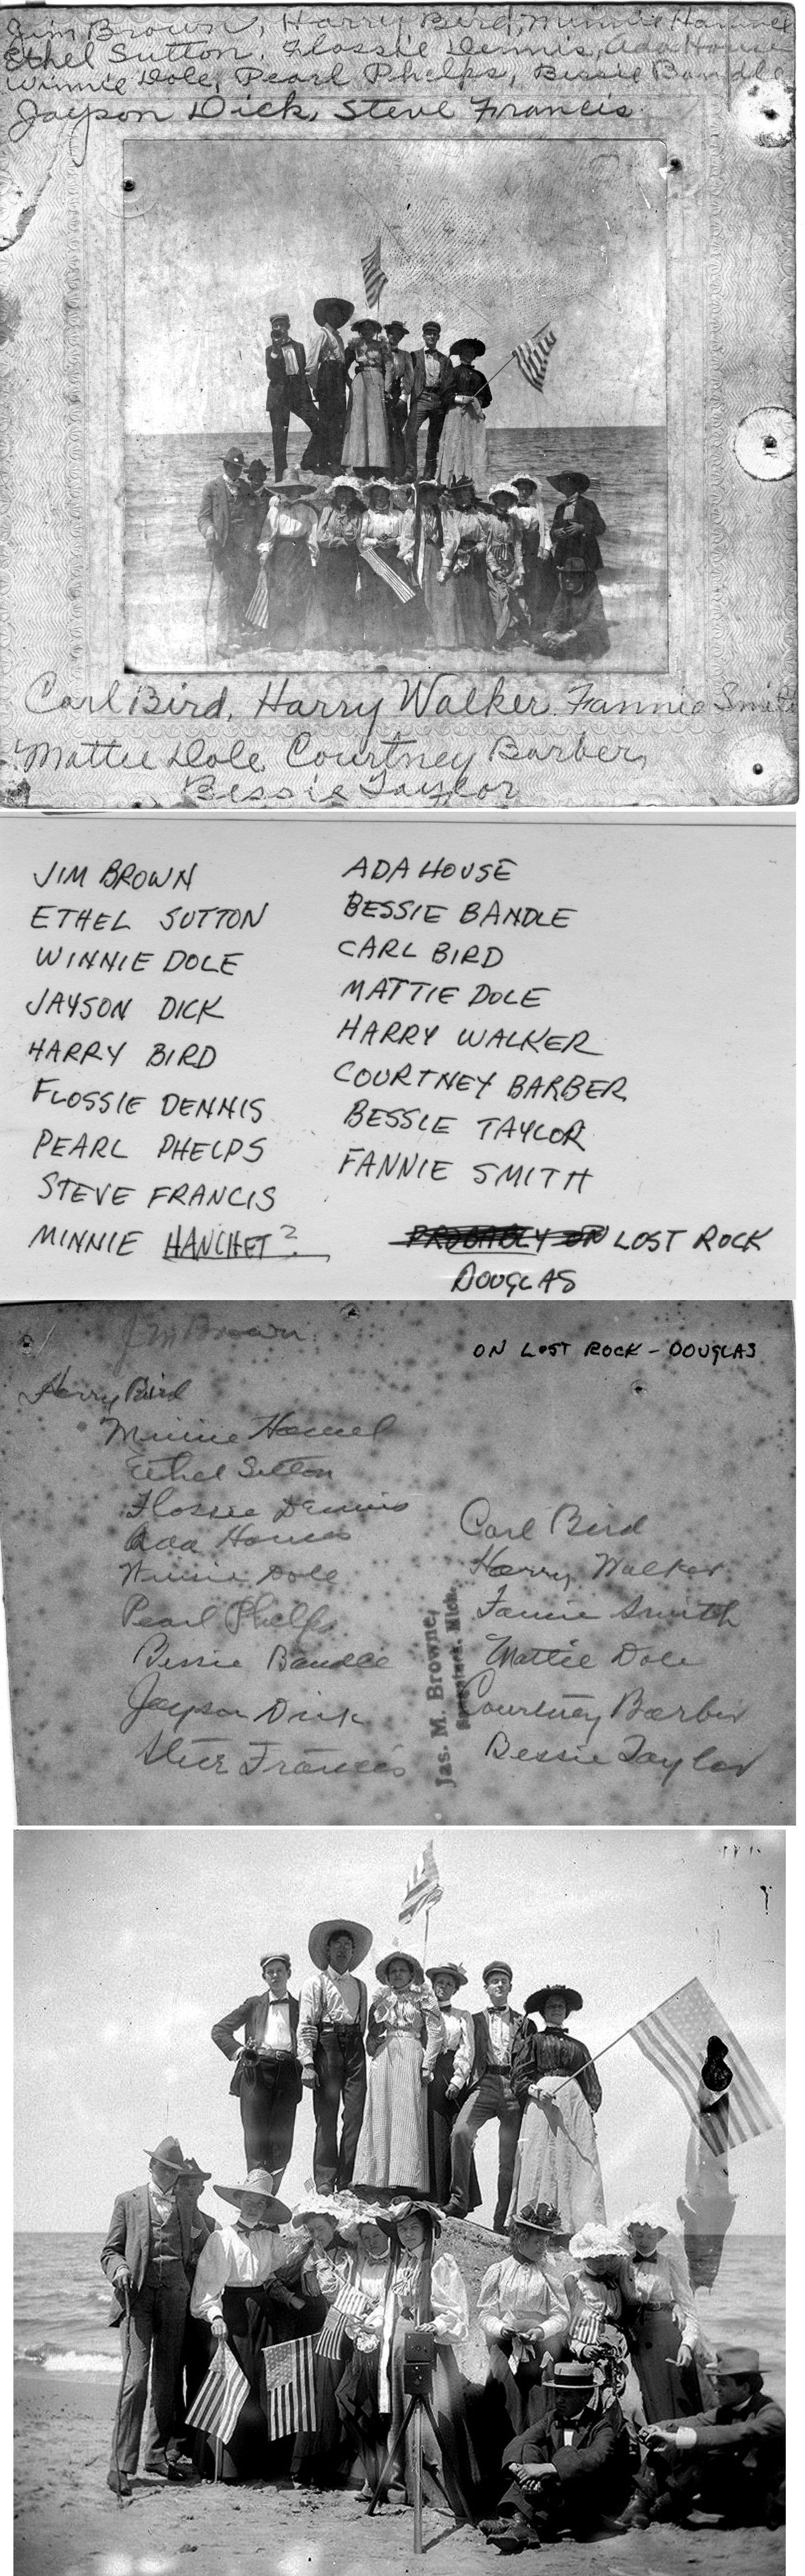 Jim Brown, Harry Bird, Minnie
Ethel Sutton, Flossie Dennis, Ada House
Winnie Dole, Pearl Phelps, Bessie Bandle
Jayson Dick, Steve Francis
Carl Bird, Harry Walker. Fannie Smith
Mattie Dole, Courtney Barber,
Bessie Taylor
JIM BROWN
ETHEL SUTTON
WINNIE DOLE
JAYSON DICK
HARRY BIRD
FLOSSIE DENNIS
PEARL PHELPS
STEVE FRANCIS
MINNIE HANCHET?
ADA HOUSE
BESSIE BANDLE
CARL BIRD
MATTIE DOLE
HARRY WALKER
COURTNEY BARBER
BESSIE TAYLOR
FANNIE SMITH
PROBABLY ON LOST ROCK
DOUGLAS
Jim Brown
ON LOST ROCK - DOUGLAS
Harry Bird
Minnie
Ethel Sutton
Flossie Dennis
Ada House
Winnie Dole
Pearl Phelps
Bessie Bandle
Jayson Dick
Steve Francis
Carl Bird
Harry Walker
Fannie Smith
Mattie Dole
Courtney Barber
Bessie Taylor
Jas. M. Browne,
Mich.